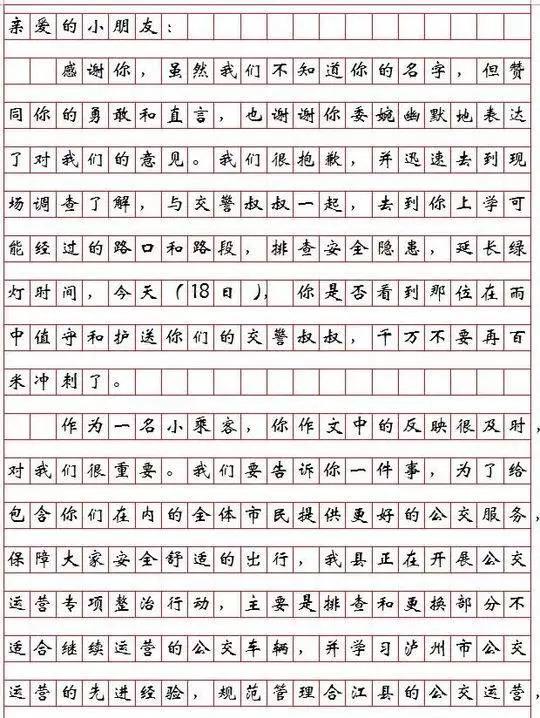 亲爱的小朋友：
感谢你，虽然我们不知道你的名字，但赞
同你的勇敢和直言，也谢谢你委婉幽默地表达
了对我们的意见。我们很抱歉，并迅速去到现
场调查了解，与交警叔叔一起，去到你上学可
能经过的路口和路段，排查安全隐患，延长绿
灯时间，今天（18日），你是否看到那位在雨
中值守和护送你们的交警叔叔，千万不要再百
米冲刺了。
作为一名小乘客，你作文中的反映很及时，
对我们很重要。我们要告诉你一件事，为了给
包含你们在内的全体市民提供更好的公交服务，
保障大家安全舒适的出行，我县正在开展公交
运营专项整治行动，主要是排查和更换部分不
适合继续运营的公交车辆，并学习泸州市公交
运营的先进经验，规范管理合江县的公交运营，